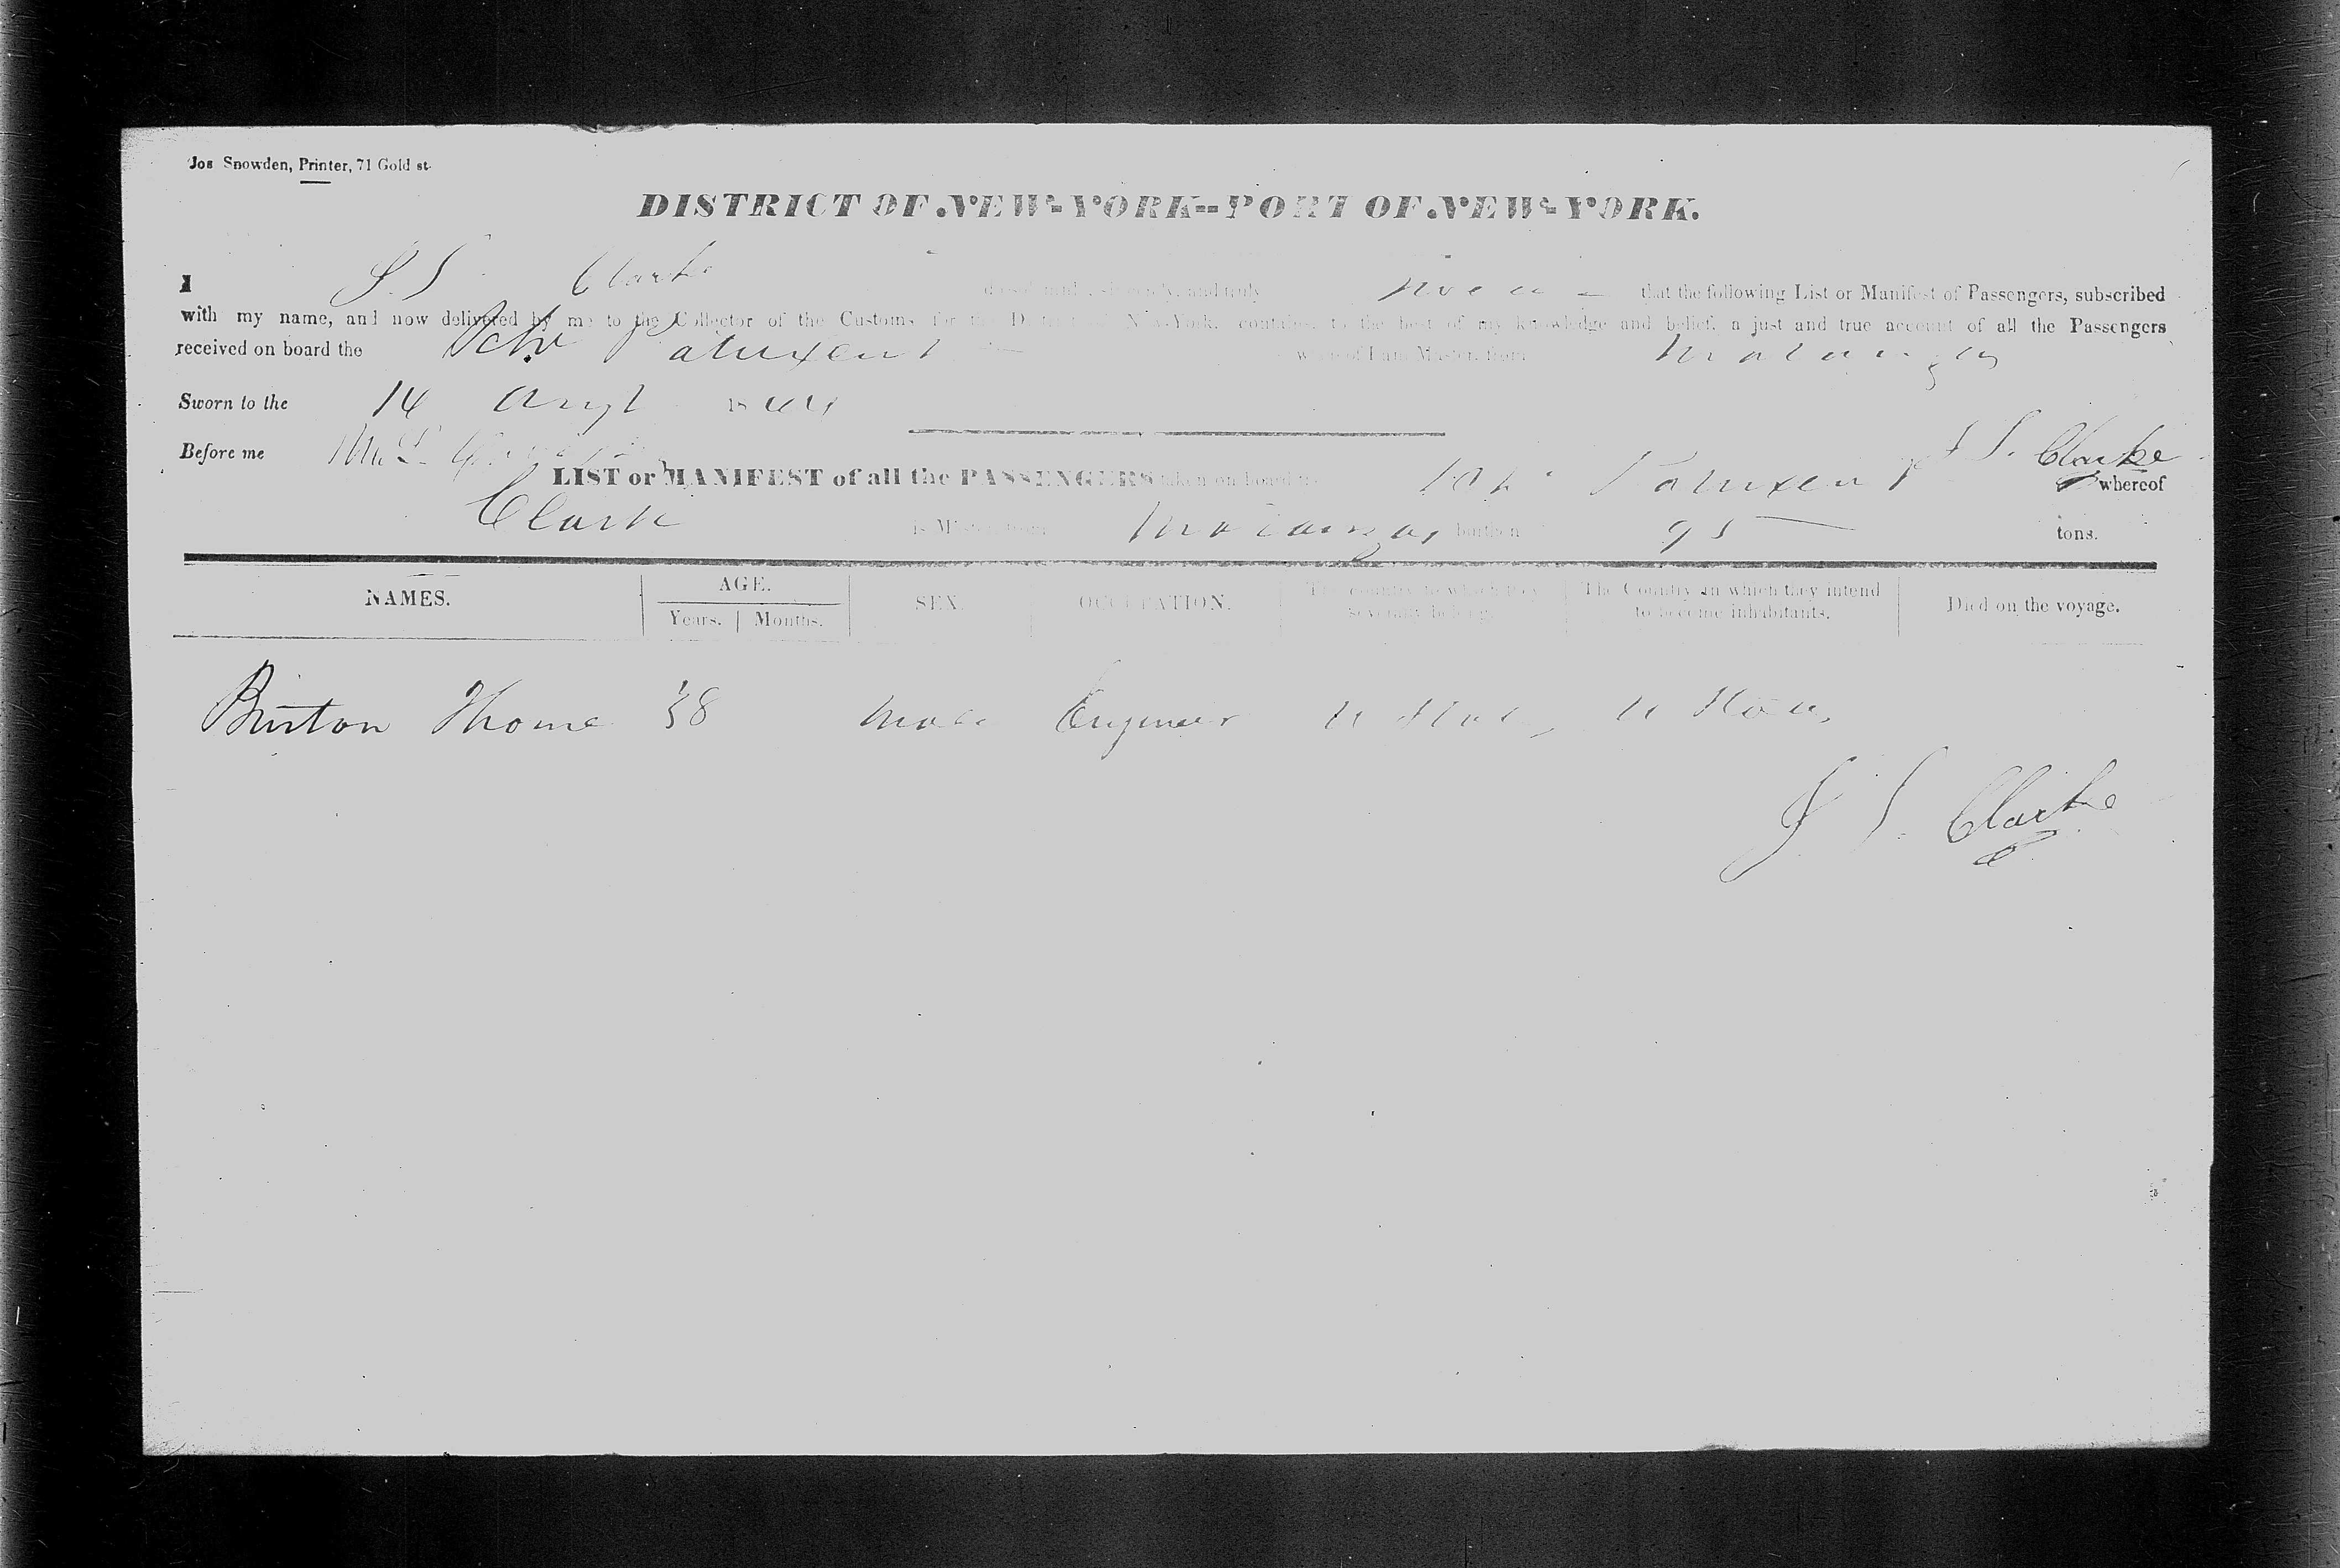 Jos Snowden, Printer, 71 Gold st.
DISTRICT OF NEW-YORK--PORT OF NEW-YORK.
I J. S. Clarke do solemnly, sincerely, and truly swear that the following List or Manifest of Passengers, subscribed
with my name, and now delivered by me to the Collector of the Customs for the District of New-York, contains, to the best of my knowledge and belief, a just and true account of all the Passengers
received on board the Schr Patuxent whereof I am Master, from Matanzas
Sworn to the 14 Augt 18
Before me J S. Clarke
LIST or MANIFEST of all the PASSENGERS taken on board the Schr Patuxent whereof
Clark is Master, from Matanzas burthen 95 tons.
NAMES. AGE. SEX. OCCUPATION. The country to which they severally belong. The Country in which they intend to become inhabitants. Died on the voyage.
Years. Months.
Burton Thorne 38 Male Engineer U States U States
J S. Clarke